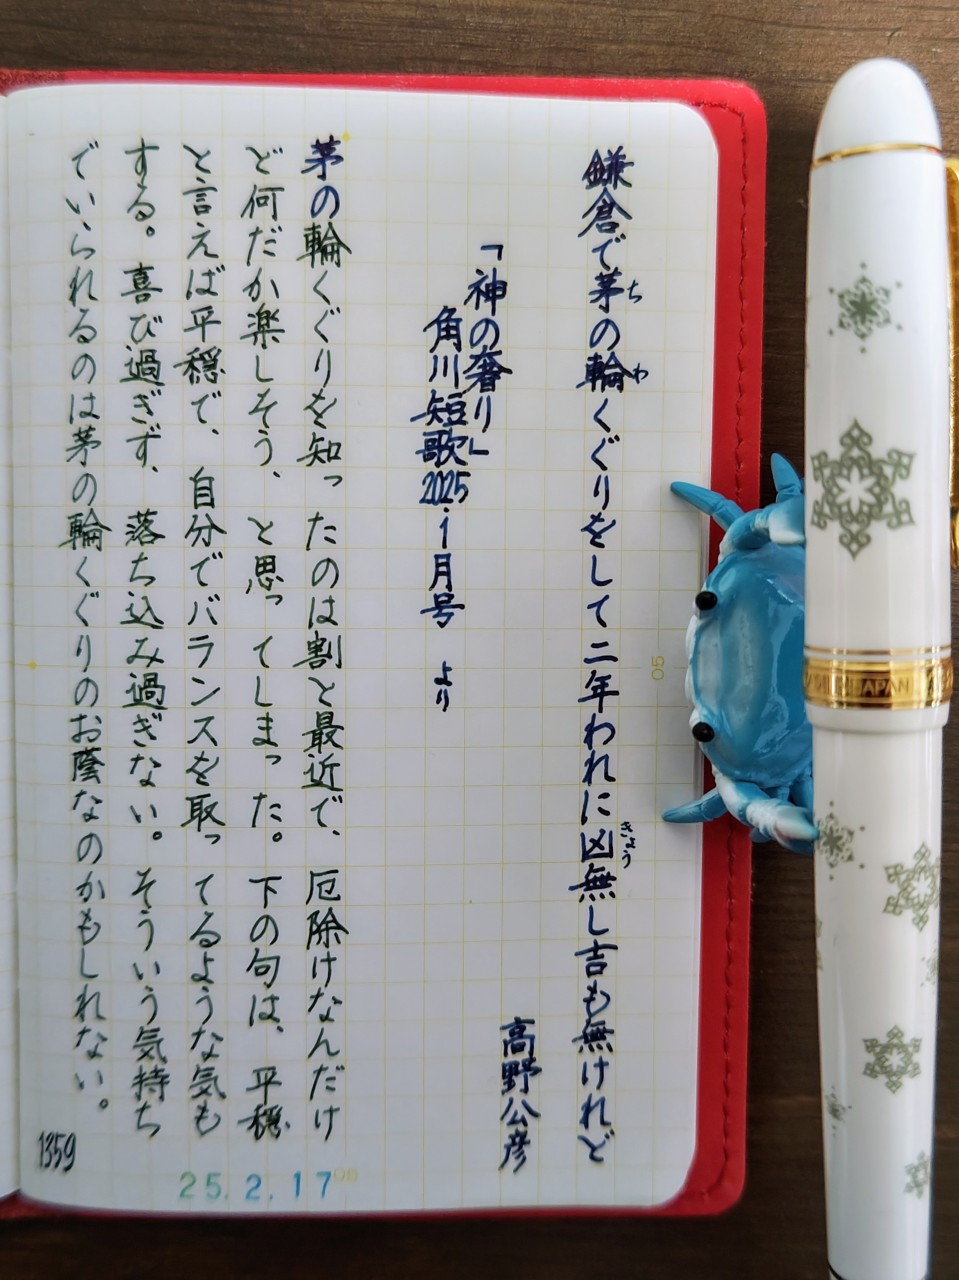 鎌倉で茅の輪くぐりをして二年われに凶無し吉も無けれど
ち
わ
きょう
高野公彦
「神の奢り」
角川短歌2025.1月号 より
茅の輪くぐりを知ったのは割と最近で、厄除けなんだけ
ど何だか楽しそう、と思ってしまった。下の句は、平穏
と言えば平穏で、自分でバランスを取ってるような気も
する。喜び過ぎず、落ち込み過ぎない。そういう気持ち
でいられるのは茅の輪くぐりのお蔭なのかもしれない。
1359
25.2.17
05
06
JAPAN